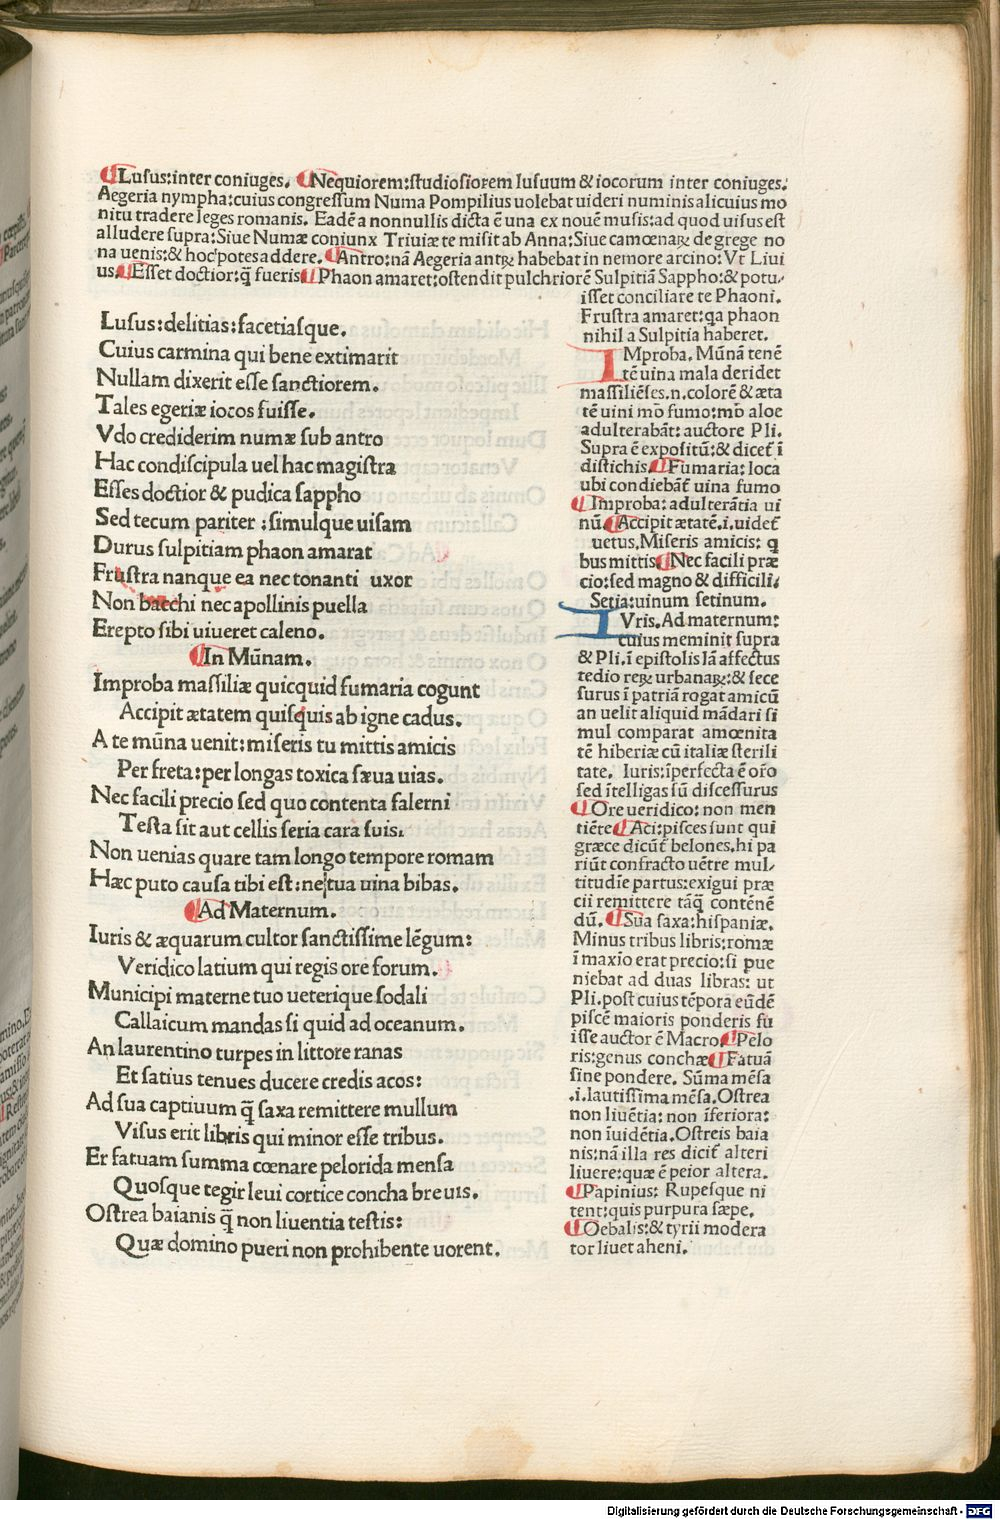 ¶Lusus:inter coniuges. ¶Nequiorem:studiosiorem lusuum & iocorum inter coniuges.
Aegeria nympha:cuius congressum Numa Pompilius uolebat uideri numinis alicuius mo
nitu tradere leges romanis. Eadē a nonnullis dicta ē una ex nouē musis:ad quod uisus est
alludere supra:Siue Numæ coniunx Triuiæ te misit ab Anna:Siue camœnaꝝ de grege no
na uenis:& hoc potes addere. ¶Antro:nā Aegeria antꝝ habebat in nemore arcino: Vt Liui
us. ¶Esset doctior:q̄ fueris ¶Phaon amaret:ostendit pulchriorē Sulpitiā Sappho:& potu-
isset conciliare te Phaoni.
Frustra amaret:qa phaon
nihil a Sulpitia haberet.
Lusus:delitias:facetiasque.
Cuius carmina qui bene extimarit
Nullam dixerit esse sanctiorem.
Tales egeriæ iocos fuisse.
Vdo crediderim numæ sub antro
Hac condiscipula uel hac magistra
Esses doctior & pudica sappho
Sed tecum pariter : simulque uisam
Durus sulpitiam phaon amarat
Frustra nanque ea nec tonanti uxor
Non bacchi nec apollinis puella
Erepto sibi uiueret caleno.
¶In Mūnam.
Improba massiliæ quicquid fumaria cogunt
Accipit ætatem quisquis ab igne cadus.
A te mūna uenit:miseris tu mittis amicis
Per freta:per longas toxica sæua uias.
Nec facili precio sed quo contenta falerni
Testa sit aut cellis seria cara suis.
Non uenias quare tam longo tempore romam
Hæc puto causa tibi est:ne tua uina bibas.
¶Ad Maternum.
Iuris & æquarum cultor sanctissime lēgum:
Veridico latium qui regis ore forum.
Municipi materne tuo ueterique sodali
Callaicum mandas si quid ad oceanum.
An laurentino turpes in littore ranas
Et satius tenues ducere credis acos:
Ad sua captiuum q̄ saxa remittere mullum
Visus erit libris qui minor esse tribus.
Er fatuam summa cœnare pelorida mensa
Quosque tegir leui cortice concha breuis.
Ostrea baianis q̄ non liuentia testis:
Quæ domino pueri non prohibente uorent.
IMproba. Mūnā tenē
tē uina mala deridet
massiliēses.n.colorē & æta
tē uini mō fumo:mō aloe
adulterabāt: auctore Pli.
Supra ē expositū:& dicet ī
distichis. ¶Fumaria: loca
ubi condiebāt uina fumo
¶Improba: adulterātia ui
nū. ¶Accipit ætatē.i.uidet
uetus. Miseris amicis: q
bus mittis ¶Nec facili præ
cio:sed magno & difficili.
Setia:uinum setinum.
IVris. Ad maternum:
cuius meminit supra
& Pli.ī epistolis lā affectus
tedio reꝝ urbanaꝝ:& sece
surus ī patriā rogat amicū
an uelit aliquid mādari si
mul comparat amœnita
tē hiberiæ cū italiæ sterili
tate. Iuris:īperfecta ē orō
sed ītelligas sū discessurus
¶Ore ueridico: non men
tiēte ¶Aci:pisces sunt qui
græce dicūt belones.hi pa
riūt confracto uētre mul-
titudīe partus:exigui præ
cii remittere tāq̄ contēnē
dū. ¶Sua saxa:hispaniæ.
Minus tribus libris:romæ
ī maxio erat precio:si pue
niebat ad duas libras: ut
Pli.post cuius tēpora eūdē
piscē maioris ponderis fu
isse auctor ē Macro. ¶Pelo
ris:genus conchæ ¶Fatuā
sine pondere. Sūma mēsa
.i.lautissima mēsa.Ostrea
non liuētia: non īferiora:
non īuidētia.Ostreis baia
nis:nā illa res dicit alteri
liuere:quæ ē peior altera.
¶Papinius: Rupesque ni
tent:quis purpura sæpe.
¶Oebalis:& tyrii modera
tor liuet aheni.
Digitalisierung gefördert durch die Deutsche Forschungsgemeinschaft - DFG